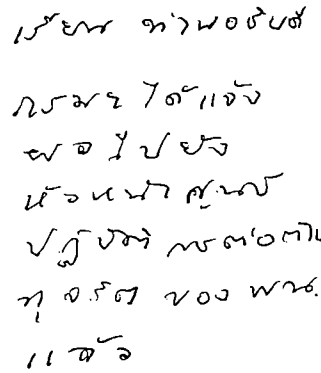 เรียน ท่านอธิบดี
กรมฯ ได้แจ้ง
ผอ ไปยัง
หัวหน้า ศูนย์
ปฏิบัติ การต่อต้าน
ทุจริต ของ พน.
แล้ว